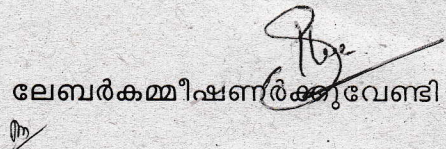 ലേബർകമ്മീഷണർക്കുവേണ്ടി